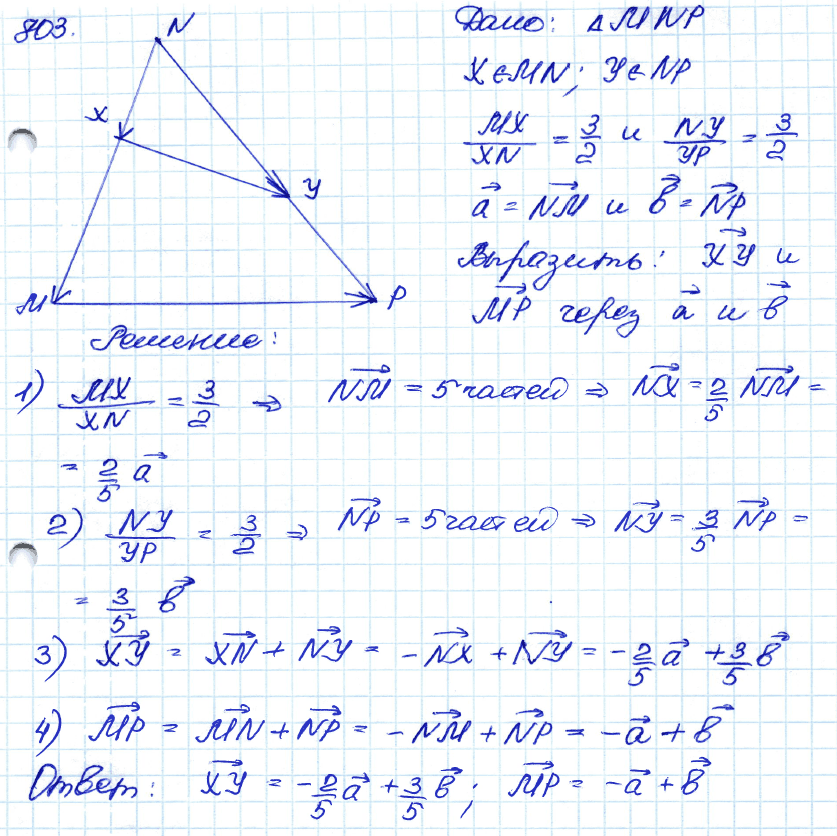 803.
N
X
Y
M
P
Дано: △MNP
X∈MN; Y∈NP
MX/XN = 3/2 и NY/YP = 3/2
a⃗ = NM⃗ и b⃗ = NP⃗
Выразить: XY⃗ и
MP⃗ через a⃗ и b⃗
Решение:
1) MX/XN = 3/2 ⇒ NM⃗ = 5 частей ⇒ NX⃗ = 2/5 NM⃗ =
= 2/5 a⃗
2) NY/YP = 3/2 ⇒ NP⃗ = 5 частей ⇒ NY⃗ = 3/5 NP⃗ =
= 3/5 b⃗
3) XY⃗ = XN⃗ + NY⃗ = -NX⃗ + NY⃗ = -2/5 a⃗ + 3/5 b⃗
4) MP⃗ = MN⃗ + NP⃗ = -NM⃗ + NP⃗ = -a⃗ + b⃗
Ответ: XY⃗ = -2/5 a⃗ + 3/5 b⃗; MP⃗ = -a⃗ + b⃗